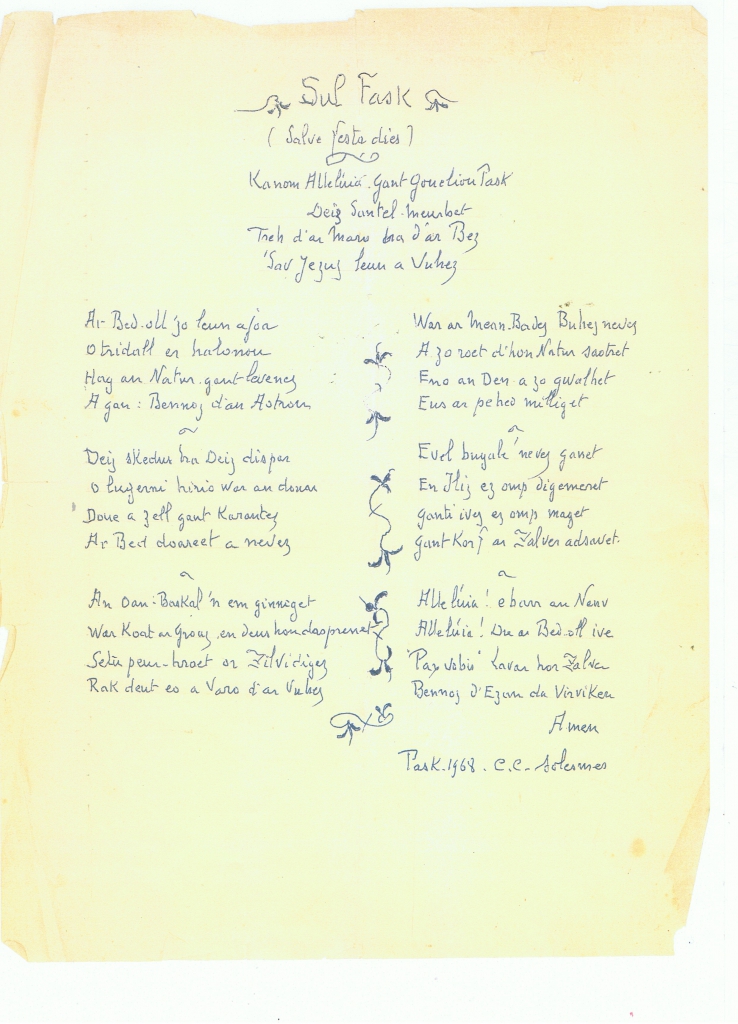 Sul Fask
(Salve festa dies)
Kanom Alleluia gant goueliou Pask
Deiz Santel meurbet
Treh d'ar Maro ha d'ar Bez
'Sav Jezuz leun a Vuhez
Ar Bed-oll 'zo leun a joa
O tridall er halonou
Hag an Natur gant levenez
A gan : Bennoz d'an Aotrou
~
Deiz skedus ha Deiz dispar
O lugerni hirio war an douar
Doue a zell gant Karantez
Ar Bed doareet a nevez
~
An Oan-Baskal 'n em ginniget
War Koat ar Groaz, en deus hon dasprenet
Setu peur-hroet or Zilvidigez
Rak deut eo a Varo d'ar Vuhez
War ar Mean-Badez Buhez nevez
A zo roet d'hon Natur saotret
Eno an Den a zo gwalhet
Eus ar pehed milliget
~
Evel bugale nevez ganet
En Iliz ez omp digemeret
Ganti ivez ez omp maget
Gant Korf ar Zalver adsavet.
~
Alleluia ! e barr an Nenv
Alleluia ! Dre ar Bed-oll ive
"Pax vobis" Lavar hor Zalver
Bennoz d'Ezan da Virviken
Amen
Pask. 1968. C.C. Solesmes